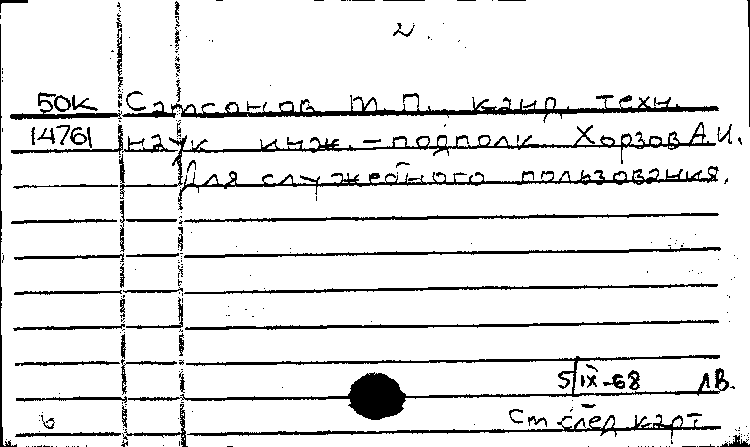 2.
50К Самсонов Т.П. канд. техн.
14761 наук инж.-подполк Хорзов А.И.
Для служебного пользования.
5/IX-68 ЛВ.
См след карт